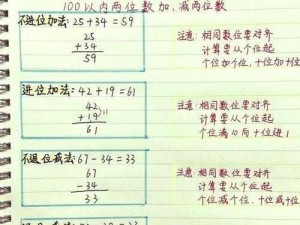 100以内两位数加,减两位数
不进位加法: 25+34=59
25
+34
59
注意:相同数位要对齐
计算要从个位起
个位加个位,十位加十位
进位加法: 42+19=61
42
+19
61
注意:相同数位要对齐
计算要从个位起
个位满10向十位进1
不退位减法: 67-34=33
67
-34
33
注意:相同数位要对齐
计算要从个位起
个位减个位,十位减十位